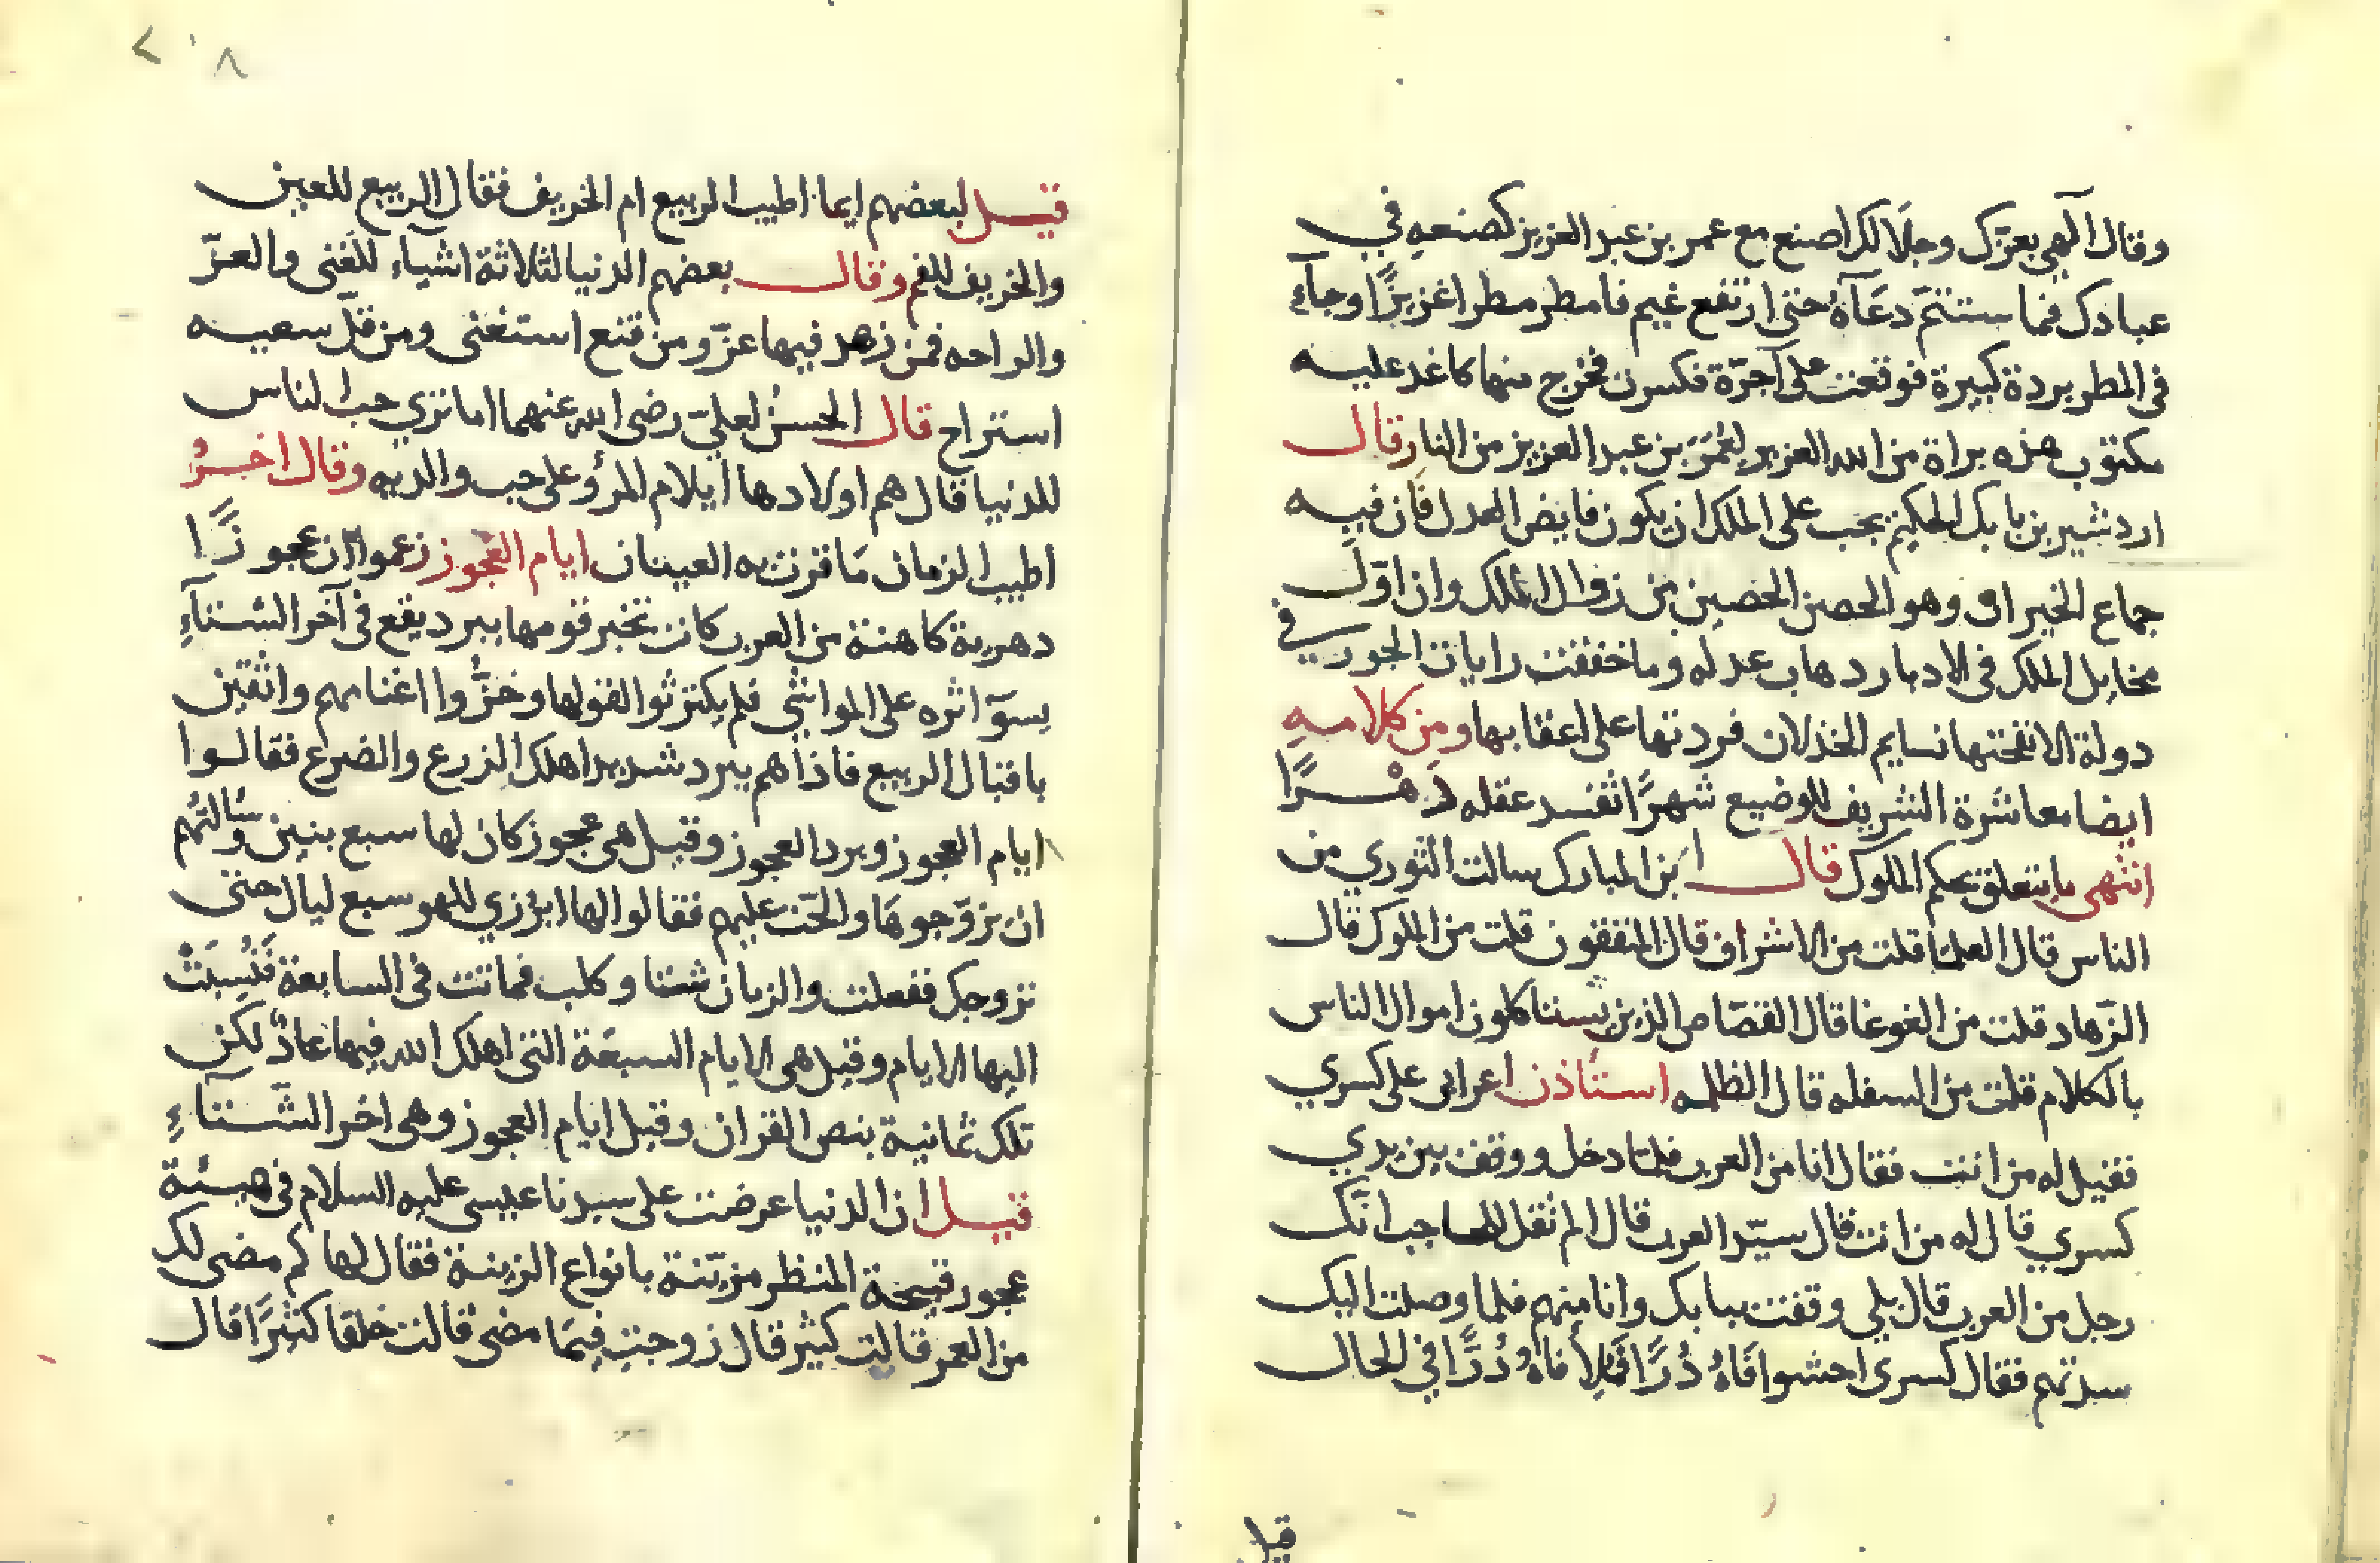 وقال الهي بعزك وجلالك اصنع مع عمر بن عبد العزيز كصنعه في
عبادك فما ستتم دعآؤه حتى ارتفع غيم فامطر مطرا غزيرًا وجآء
في المطر بردة كبيرة فوقعت على آجرّة فكسرت فخرج منها كاغد عليه
مكتوب هذه براة من الله العزيز لعُمَرَ بن عبد العزيز من النار قال
اردشير بن بابك الحكيم يجب على الملك ان يكون فايض العدل فان فيه
جماع الخيرات وهو الحصن الحصين من زوال الملك وان اوّل
مخايل الملك في الادبار دهاب عدله وما خففت رايات الجور في
دولة الا نفختها نسايم الخذلان فردتها على اعقابها ومن كلامه
ايضا معاشرة الشريف للوضيع شهرًا تفسد عقله دهْرًا
انتهى ما يتعلق بحكم الملوك قال ابن المبارك سالت الثوري من
الناس قال العلما قلت من الاشراف قال المتقون قلت من الملوك قال
الزّهاد قلت من الغوغا قال القصّاص الذين يستاكلون اموال الناس
بالكلام قلت من السفله قال الظلمه استأذن اعرابى على كسري
فقيل له من انت فقال انا من العرب فلما دخل ووقف بين يدي
كسري قال له من انت قال سيّد العرب قال الم تقل للحاجب انّك
رجل من العرب قال بلي وقفت ببابك وانا منهم فلما وصلت اليك
سدتهم فقال كسرى احشوا فاهُ دُرًّا فَمُلِأ فاهُ دُرًّا في الحال
قيل
٢٠٨
قيل لبعضهم ايما اطيب الربيع ام الخريف فقال الربيع للعين
والخريف للفم وقال بعضهم الدنيا لثلاثة اشيآء للغنى والعزّ
والراحه فمن زهد فيها عزّ ومن قنع استغنى ومن قلّ سعيه
استراح قال الحسنُ لعليّ رضى الله عنهما اما تري حب الناس
للدنيا قال هم اولادها ايلام المرؤ على حب والديه وقال اخرُ
اطيب الزمان مَا قرت به العينان ايام العجوز زعموا ان عجوزًا
دهرية كاهنة من العرب كانت تخبر قومها ببرد يقع في آخر الشتآءِ
يسوٓ اثره على المواشي فلم يكترثوا لقولها وخزُّوا اغنامهم واثقين
باقبال الربيع فاذا هم ببرد شديد اهلك الزرع والضرع فقالوا
ايام العجوز وبرد العجوز وقيل هي عجوز كان لها سبع بنين وسَالتهُم
ان يزوّجوهَا والحّت عليهم فقالوا لها ابرُزي للهو سبع ليال حتى
نزوجك ففعلت والزمان شتا وكلب فماتت في السابعة فنُسِبَتْ
اليها الايام وقيل هى الايام السبعَة التي اهلك الله فيها عادٌ لكن
تلك ثمانية بنص القران وقيل ايام العجوز وهى اخر الشّتآءِ
قيل ان الدنيا عرضت على سيدنا عيسى عليه السلام في هيئة
عجوز قبيحة المنظر مزيّنة بانواع الزينة فقال لها كم مضى لك
من العمر قالت كثير قال زوجتِ فيمَا مضى قالت خلقا كثيرًا قال